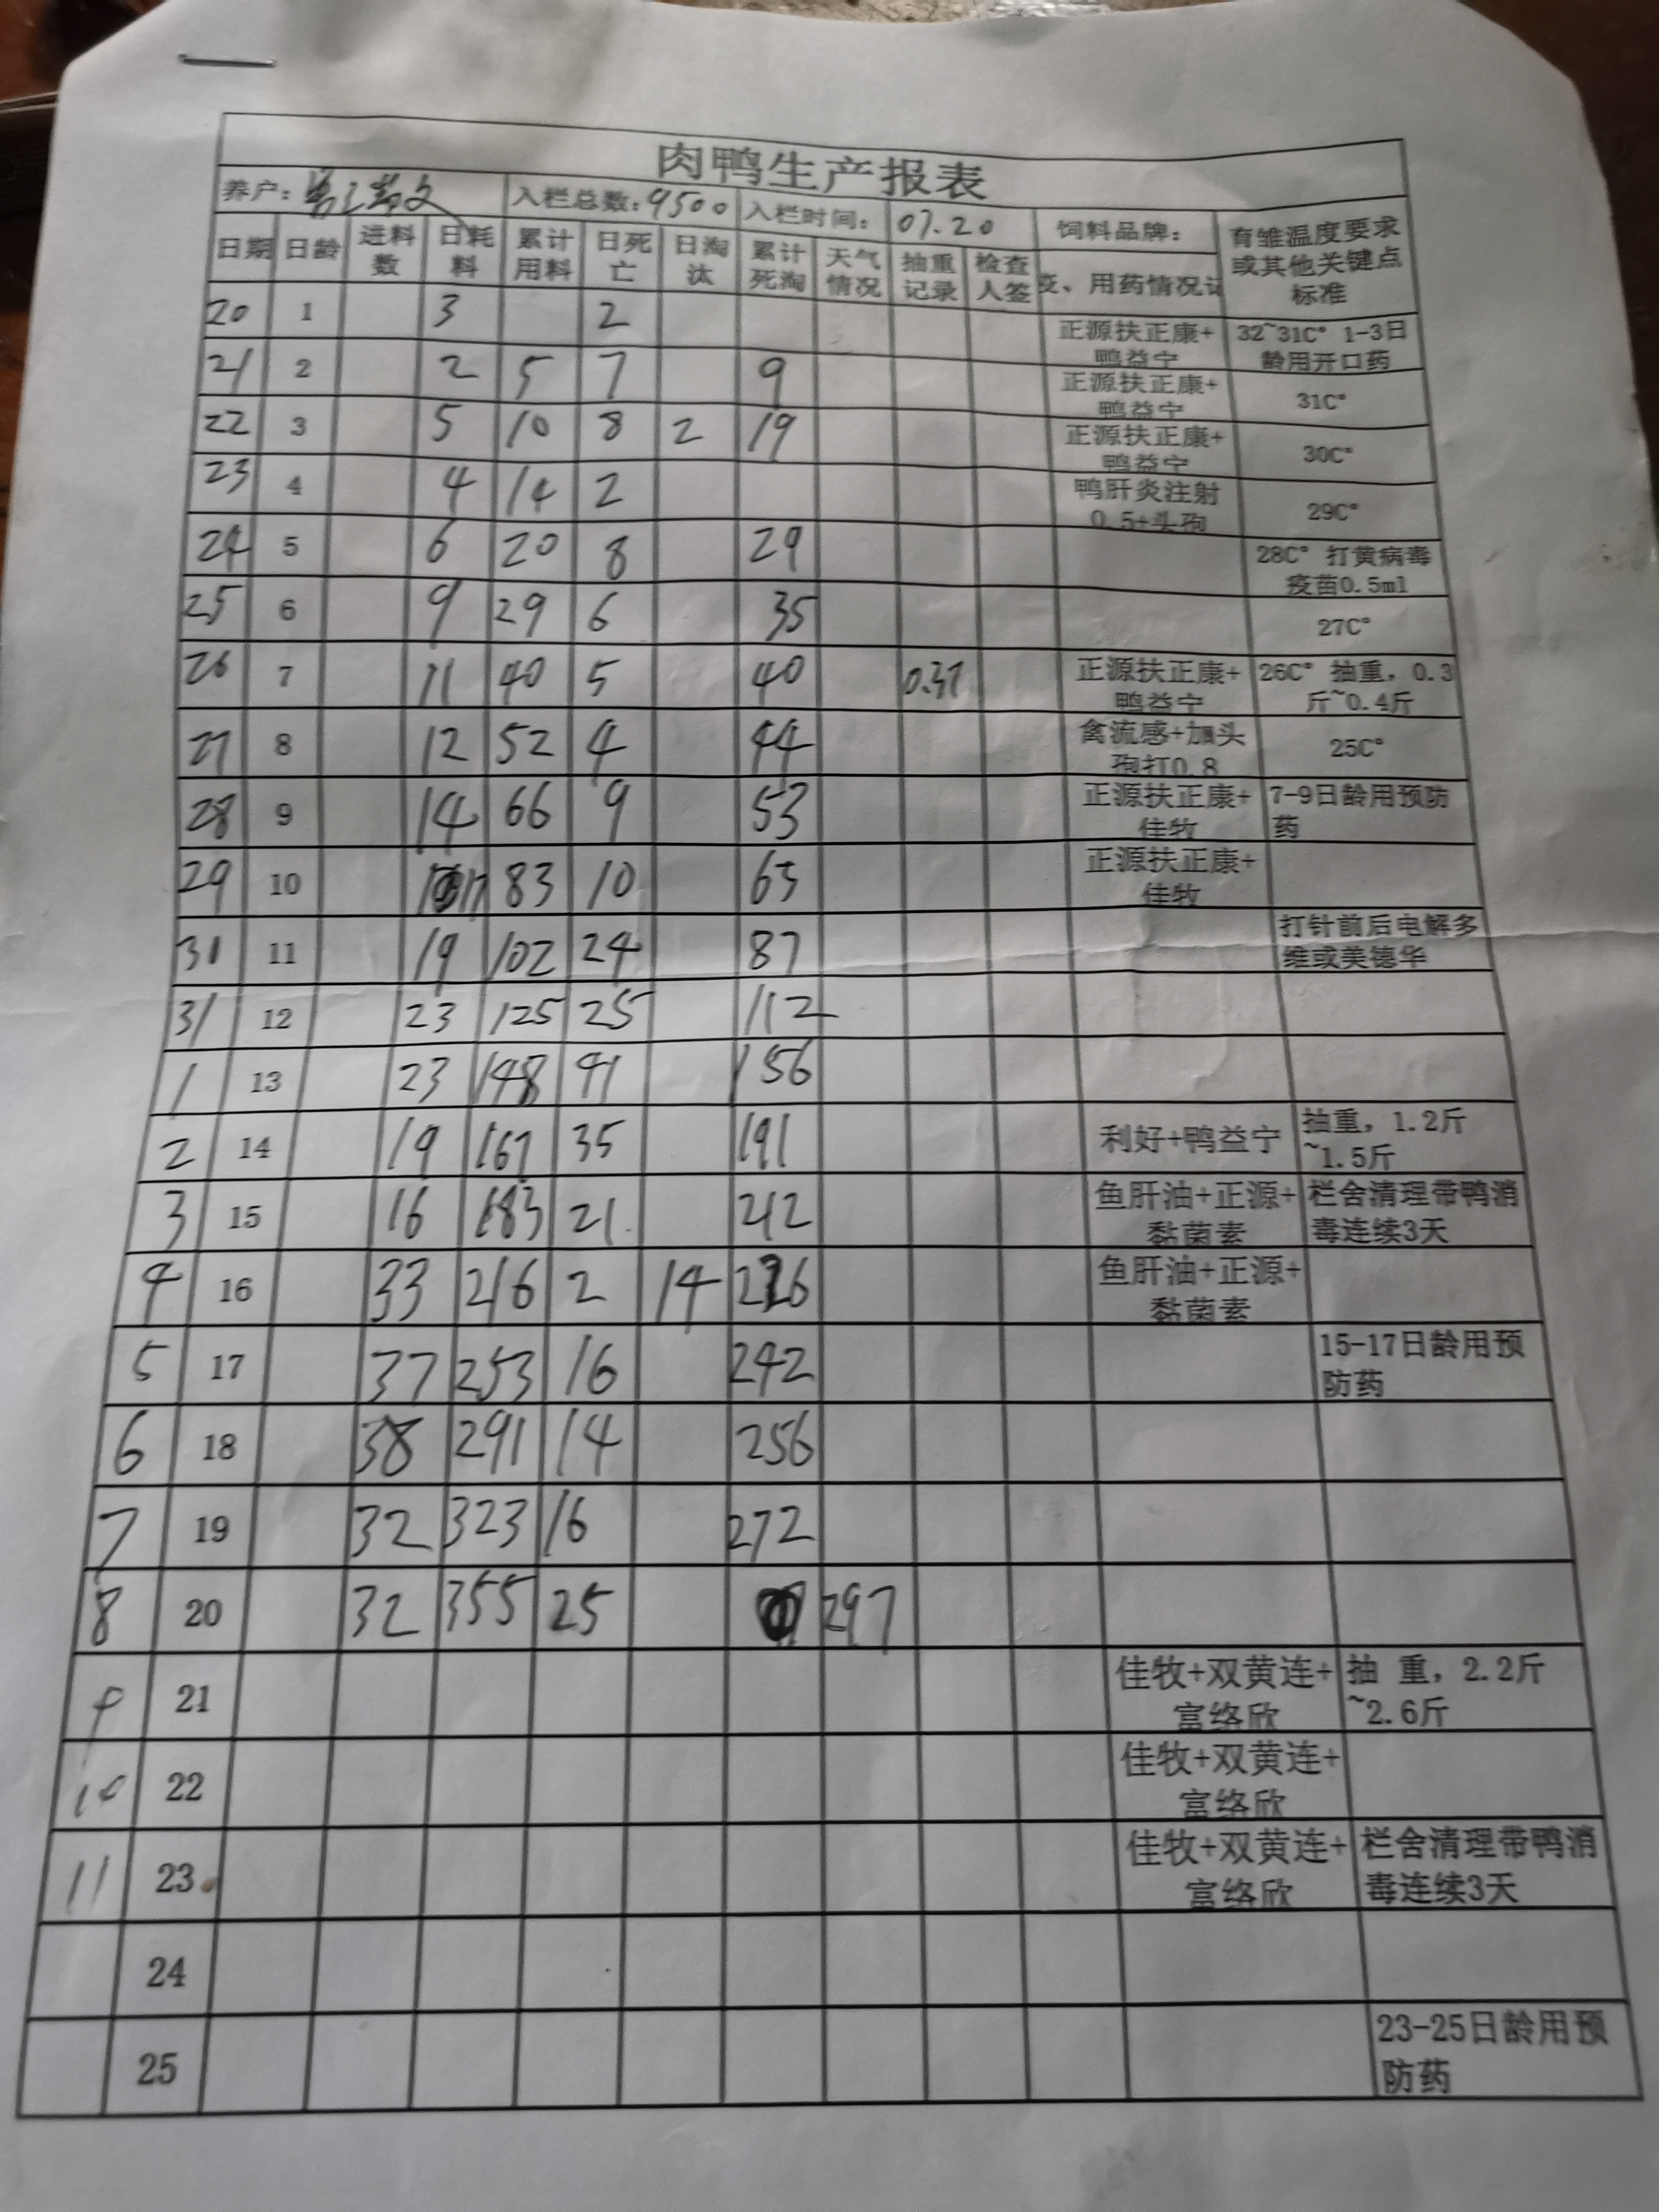 肉鸭生产报表
养户： 入栏总数：9500 入栏时间： 07.20 饲料品牌： 育雏温度要求或其他关键点标准
日期 日龄 进料数 日耗料 累计用料 日死亡 日淘汰 累计死淘 天气情况 抽重记录 检查人签 、用药情况
20 1 3 2 正源扶正康+鸭益宁 32~31C° 1-3日龄用开口药
21 2 2 5 7 9 正源扶正康+鸭益宁 31C°
22 3 5 10 8 2 19 正源扶正康+鸭益宁 30C°
23 4 4 14 2 鸭肝炎注射0.5+头孢 29C°
24 5 6 20 8 29 28C° 打黄病毒疫苗0.5ml
25 6 9 29 6 35 27C°
26 7 11 40 5 40 0.37 正源扶正康+鸭益宁 26C° 抽重，0.3斤~0.4斤
27 8 12 52 4 44 禽流感+加头孢打0.8 25C°
28 9 14 66 9 53 正源扶正康+佳牧 7-9日龄用预防药
29 10 17 83 10 63 正源扶正康+佳牧
31 11 19 102 24 87 打针前后电解多维或美德华
31 12 23 125 25 112
1 13 23 148 156
2 14 19 167 35 191 利好+鸭益宁 抽重，1.2斤~1.5斤
3 15 16 183 21 212 鱼肝油+正源+黏菌素 栏舍清理带鸭消毒连续3天
4 16 33 216 2 14 226 鱼肝油+正源+黏菌素
5 17 37 253 16 242 15-17日龄用预防药
6 18 38 291 14 256
7 19 32 323 16 272
8 20 32 355 25 297
9 21 佳牧+双黄连+富络欣 抽 重，2.2斤~2.6斤
10 22 佳牧+双黄连+富络欣
11 23 佳牧+双黄连+富络欣 栏舍清理带鸭消毒连续3天
24
25 23-25日龄用预防药